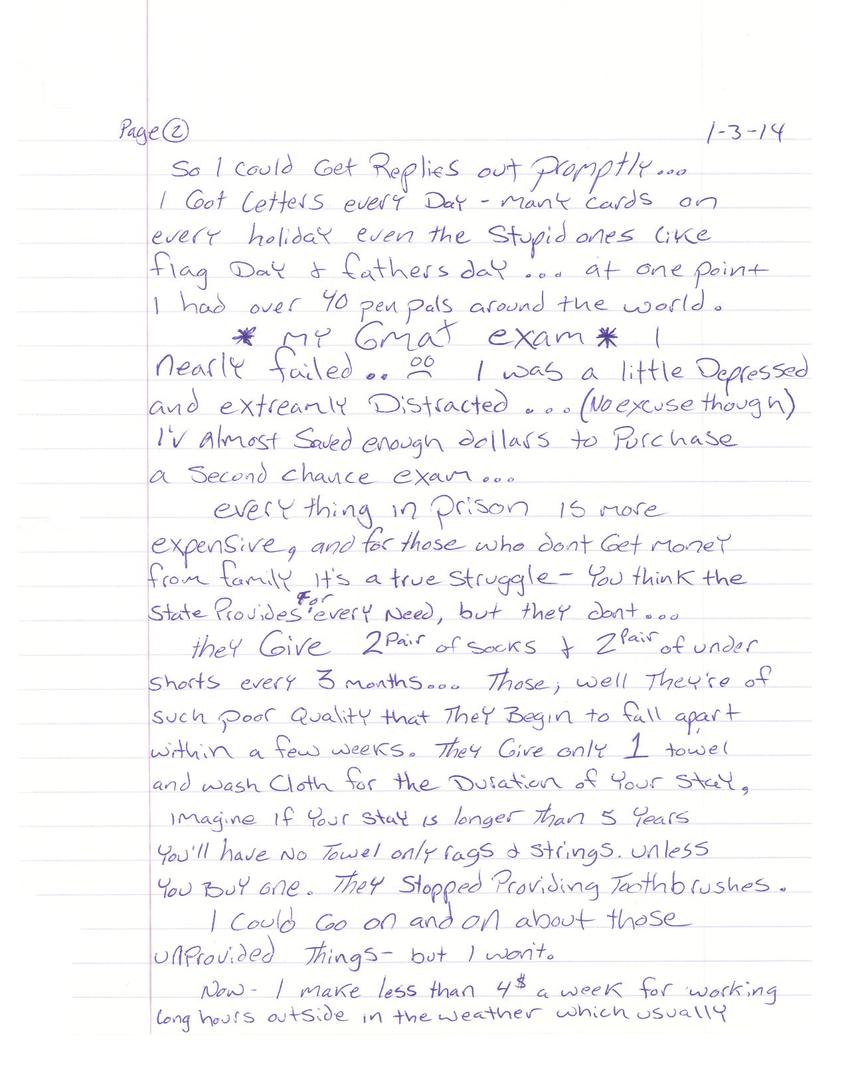 Page ② 1-3-14
So I could Get Replies out promptly...
I Got Letters every Day - many cards on
every holiday even the Stupid ones Like
flag Day & fathers day ... at one point
I had over 40 pen pals around the world.
* MY Gmat exam * I
nearly failed.. I was a little Depressed
and extreamly Distracted .... (No excuse though)
I'v Almost Saved enough dollars to Purchase
a Second Chance exam...
every thing in prison is more
expensive, and for those who dont Get money
from family It's a true Struggle - You think the
State Provides for every Need, but they dont...
they Give 2 Pair of socks & 2 Pair of under
shorts every 3 months.... Those, well They're of
such poor Quality that They Begin to fall apart
within a few weeks. They Give only 1 towel
and wash Cloth for the Duration of Your Stay,
imagine If Your stay is longer Than 5 Years
You'll have No Towel only rags & strings. unless
You Buy one. They Stopped Providing Toothbrushes.
I Could Go on and on about those
unProvided Things - but I won't.
Now - I make less than 4$ a week for working
Long hours outside in the weather which usually